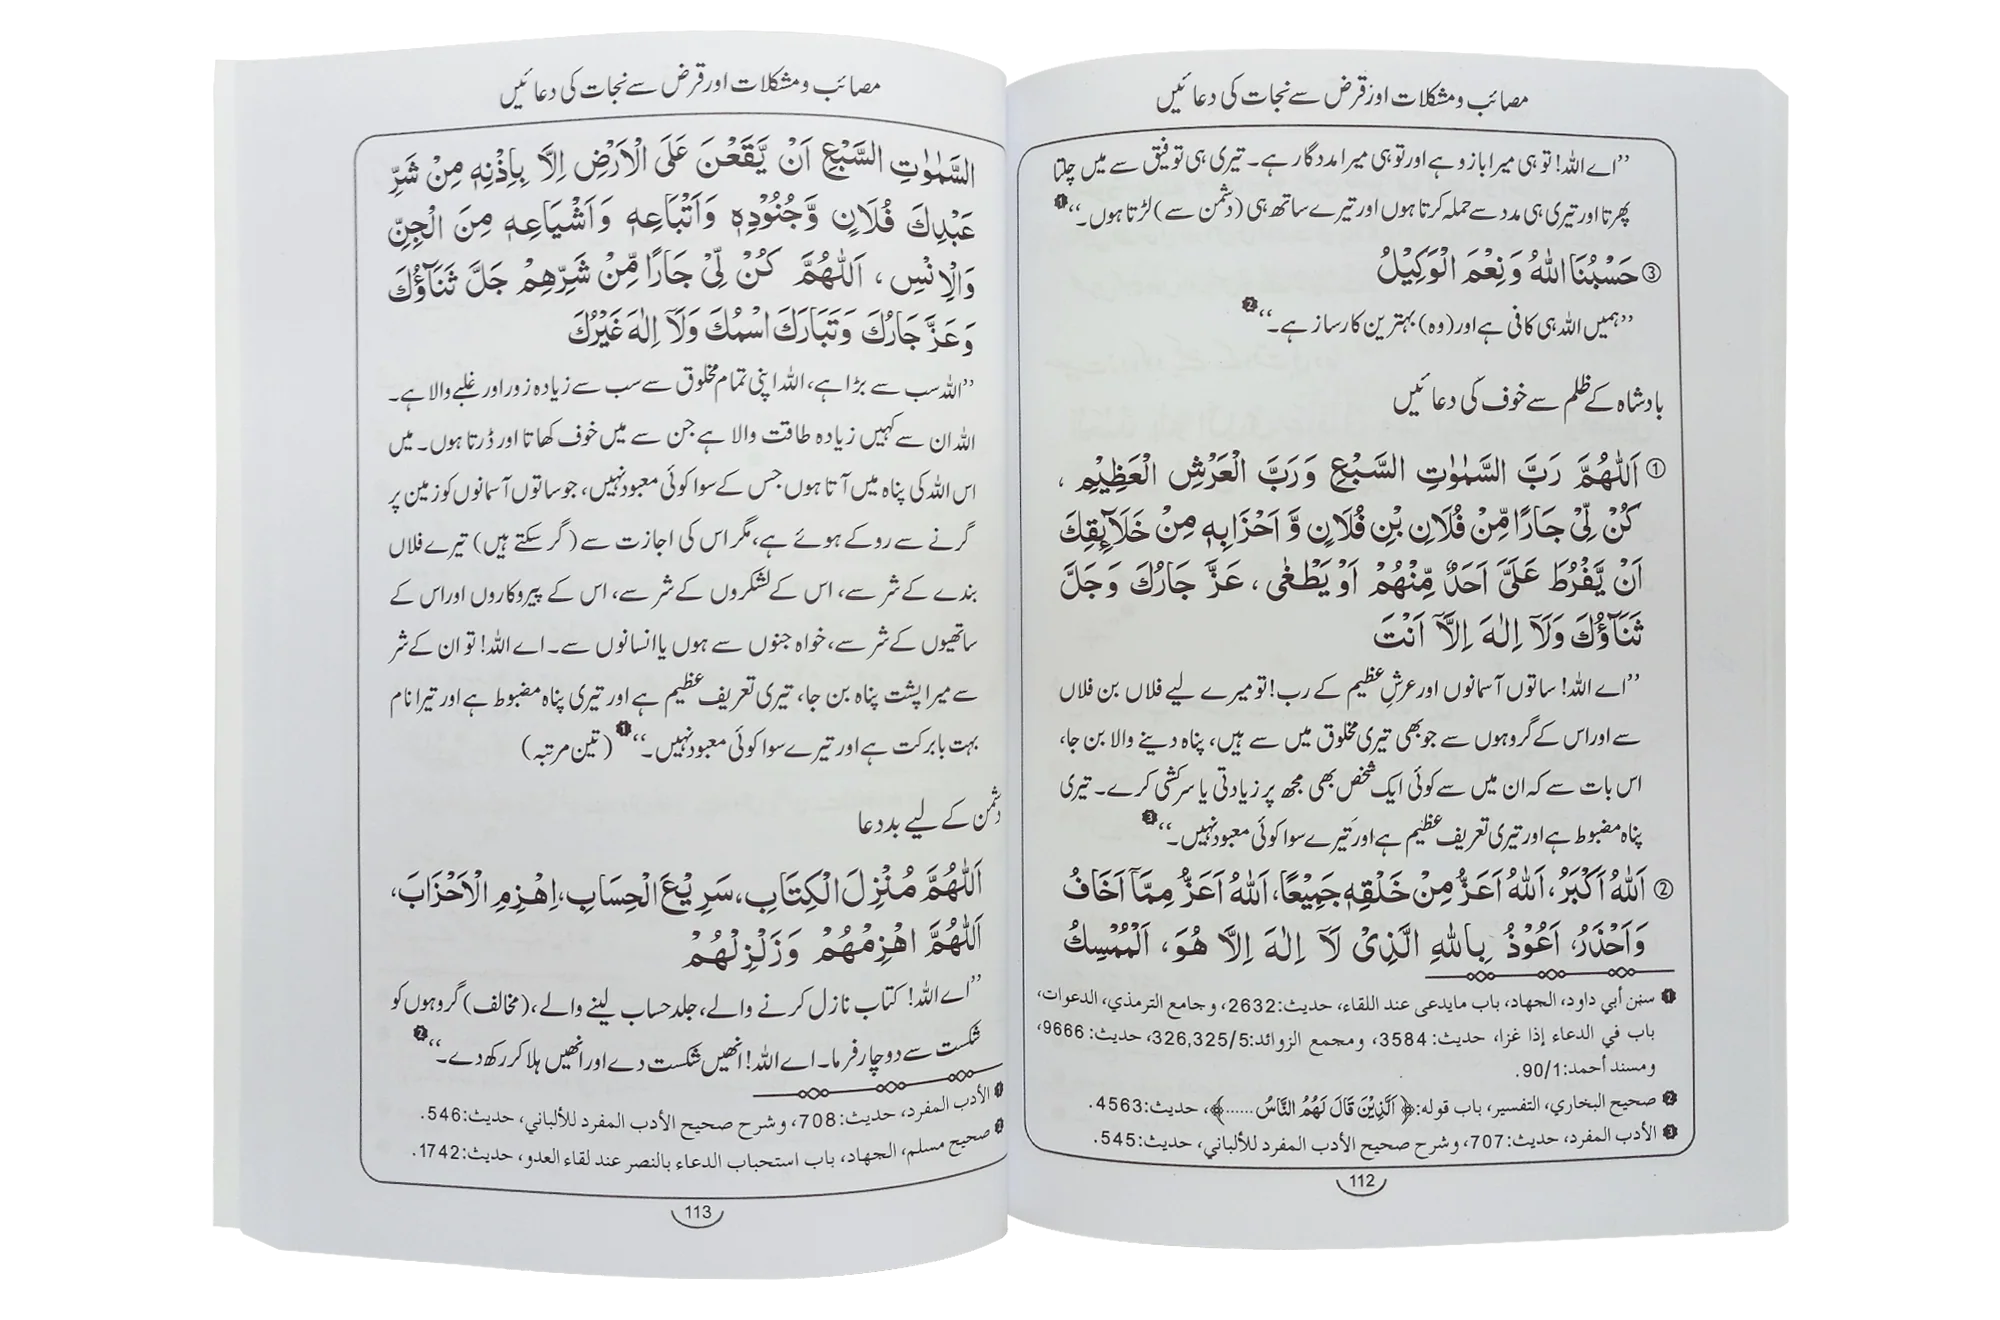 مصائب و مشکلات اور قرض سے نجات کی دعائیں
’’اے اللہ! تو ہی میرا بازو ہے اور تو ہی میرا مددگار ہے۔ تیری ہی توفیق سے میں چلتا
پھرتا اور تیری ہی مدد سے حملہ کرتا ہوں اور تیرے ساتھ ہی (دشمن سے) لڑتا ہوں۔‘‘ ❶
③ حَسْبُنَا اللهُ وَنِعْمَ الْوَكِيْلُ
’’ہمیں اللہ ہی کافی ہے اور (وہ) بہترین کارساز ہے۔‘‘ ❷
بادشاہ کے ظلم سے خوف کی دعائیں
① اَللّٰهُمَّ رَبَّ السَّمٰوٰتِ السَّبْعِ وَرَبَّ الْعَرْشِ الْعَظِيْمِ ،
كُنْ لِّيْ جَارًا مِّنْ فُلَانِ بْنِ فُلَانٍ وَّ اَحْزَابِهٖ مِنْ خَلَآئِقِكَ
اَنْ يَّفْرُطَ عَلَيَّ اَحَدٌ مِّنْهُمْ اَوْ يَطْغٰى ، عَزَّ جَارُكَ وَجَلَّ
ثَنَاؤُكَ وَلَآ اِلٰهَ اِلَّآ اَنْتَ
’’اے اللہ! ساتوں آسمانوں اور عرشِ عظیم کے رب! تو میرے لیے فلاں بن فلاں
سے اور اس کے گروہوں سے جو بھی تیری مخلوق میں سے ہیں، پناہ دینے والا بن جا،
اس بات سے کہ ان میں سے کوئی ایک شخص بھی مجھ پر زیادتی یا سرکشی کرے۔ تیری
پناہ مضبوط ہے اور تیری تعریف عظیم ہے اور تیرے سوا کوئی معبود نہیں۔‘‘ ❸
② اَللهُ اَكْبَرُ، اَللهُ اَعَزُّ مِنْ خَلْقِهٖ جَمِيْعًا، اَللهُ اَعَزُّ مِمَّآ اَخَافُ
وَاَحْذَرُ، اَعُوْذُ بِاللهِ الَّذِيْ لَآ اِلٰهَ اِلَّا هُوَ، اَلْمُمْسِكُ
❶ سنن أبي داود، الجهاد، باب مايدعى عند اللقاء، حديث:2632، وجامع الترمذي، الدعوات،
باب في الدعاء إذا غزا، حديث: 3584، ومجمع الزوائد:326,325/5، حديث: 9666،
ومسند أحمد:90/1.
❷ صحيح البخاري، التفسير، باب قوله:﴿ اَلَّذِيْنَ قَالَ لَهُمُ النَّاسُ ......﴾، حديث:4563.
❸ الأدب المفرد، حديث:707، وشرح صحيح الأدب المفرد للألباني، حديث:545.
112
مصائب و مشکلات اور قرض سے نجات کی دعائیں
السَّمٰوٰتِ السَّبْعِ اَنْ يَّقَعْنَ عَلَى الْاَرْضِ اِلَّا بِاِذْنِهٖ مِنْ شَرِّ
عَبْدِكَ فُلَانٍ وَّجُنُوْدِهٖ وَاَتْبَاعِهٖ وَاَشْيَاعِهٖ مِنَ الْجِنِّ
وَالْاِنْسِ ، اَللّٰهُمَّ كُنْ لِّيْ جَارًا مِّنْ شَرِّهِمْ جَلَّ ثَنَآؤُكَ
وَعَزَّ جَارُكَ وَتَبَارَكَ اسْمُكَ وَلَآ اِلٰهَ غَيْرُكَ
’’اللہ سب سے بڑا ہے، اللہ اپنی تمام مخلوق سے سب سے زیادہ زور اور غلبے والا ہے۔
اللہ ان سے کہیں زیادہ طاقت والا ہے جن سے میں خوف کھاتا اور ڈرتا ہوں۔ میں
اس اللہ کی پناہ میں آتا ہوں جس کے سوا کوئی معبود نہیں، جو ساتوں آسمانوں کو زمین پر
گرنے سے روکے ہوئے ہے، مگر اس کی اجازت سے (گر سکتے ہیں) تیرے فلاں
بندے کے شر سے، اس کے لشکروں کے شر سے، اس کے پیروکاروں اور اس کے
ساتھیوں کے شر سے، خواہ جنوں سے ہوں یا انسانوں سے۔ اے اللہ! تو ان کے شر
سے میرا پشت پناہ بن جا، تیری تعریف عظیم ہے اور تیری پناہ مضبوط ہے اور تیرا نام
بہت بابرکت ہے اور تیرے سوا کوئی معبود نہیں۔‘‘ ❶ (تین مرتبہ)
دشمن کے لیے بددعا
اَللّٰهُمَّ مُنْزِلَ الْكِتَابِ، سَرِيْعَ الْحِسَابِ، اِهْزِمِ الْاَحْزَابَ،
اَللّٰهُمَّ اهْزِمْهُمْ وَزَلْزِلْهُمْ
’’اے اللہ! کتاب نازل کرنے والے، جلد حساب لینے والے، (مخالف) گروہوں کو
شکست سے دوچار فرما۔ اے اللہ! انھیں شکست دے اور انھیں ہلا کر رکھ دے۔‘‘ ❷
❶ الأدب المفرد، حديث:708، وشرح صحيح الأدب المفرد للألباني، حديث:546.
❷ صحيح مسلم، الجهاد، باب استحباب الدعاء بالنصر عند لقاء العدو، حديث:1742.
113